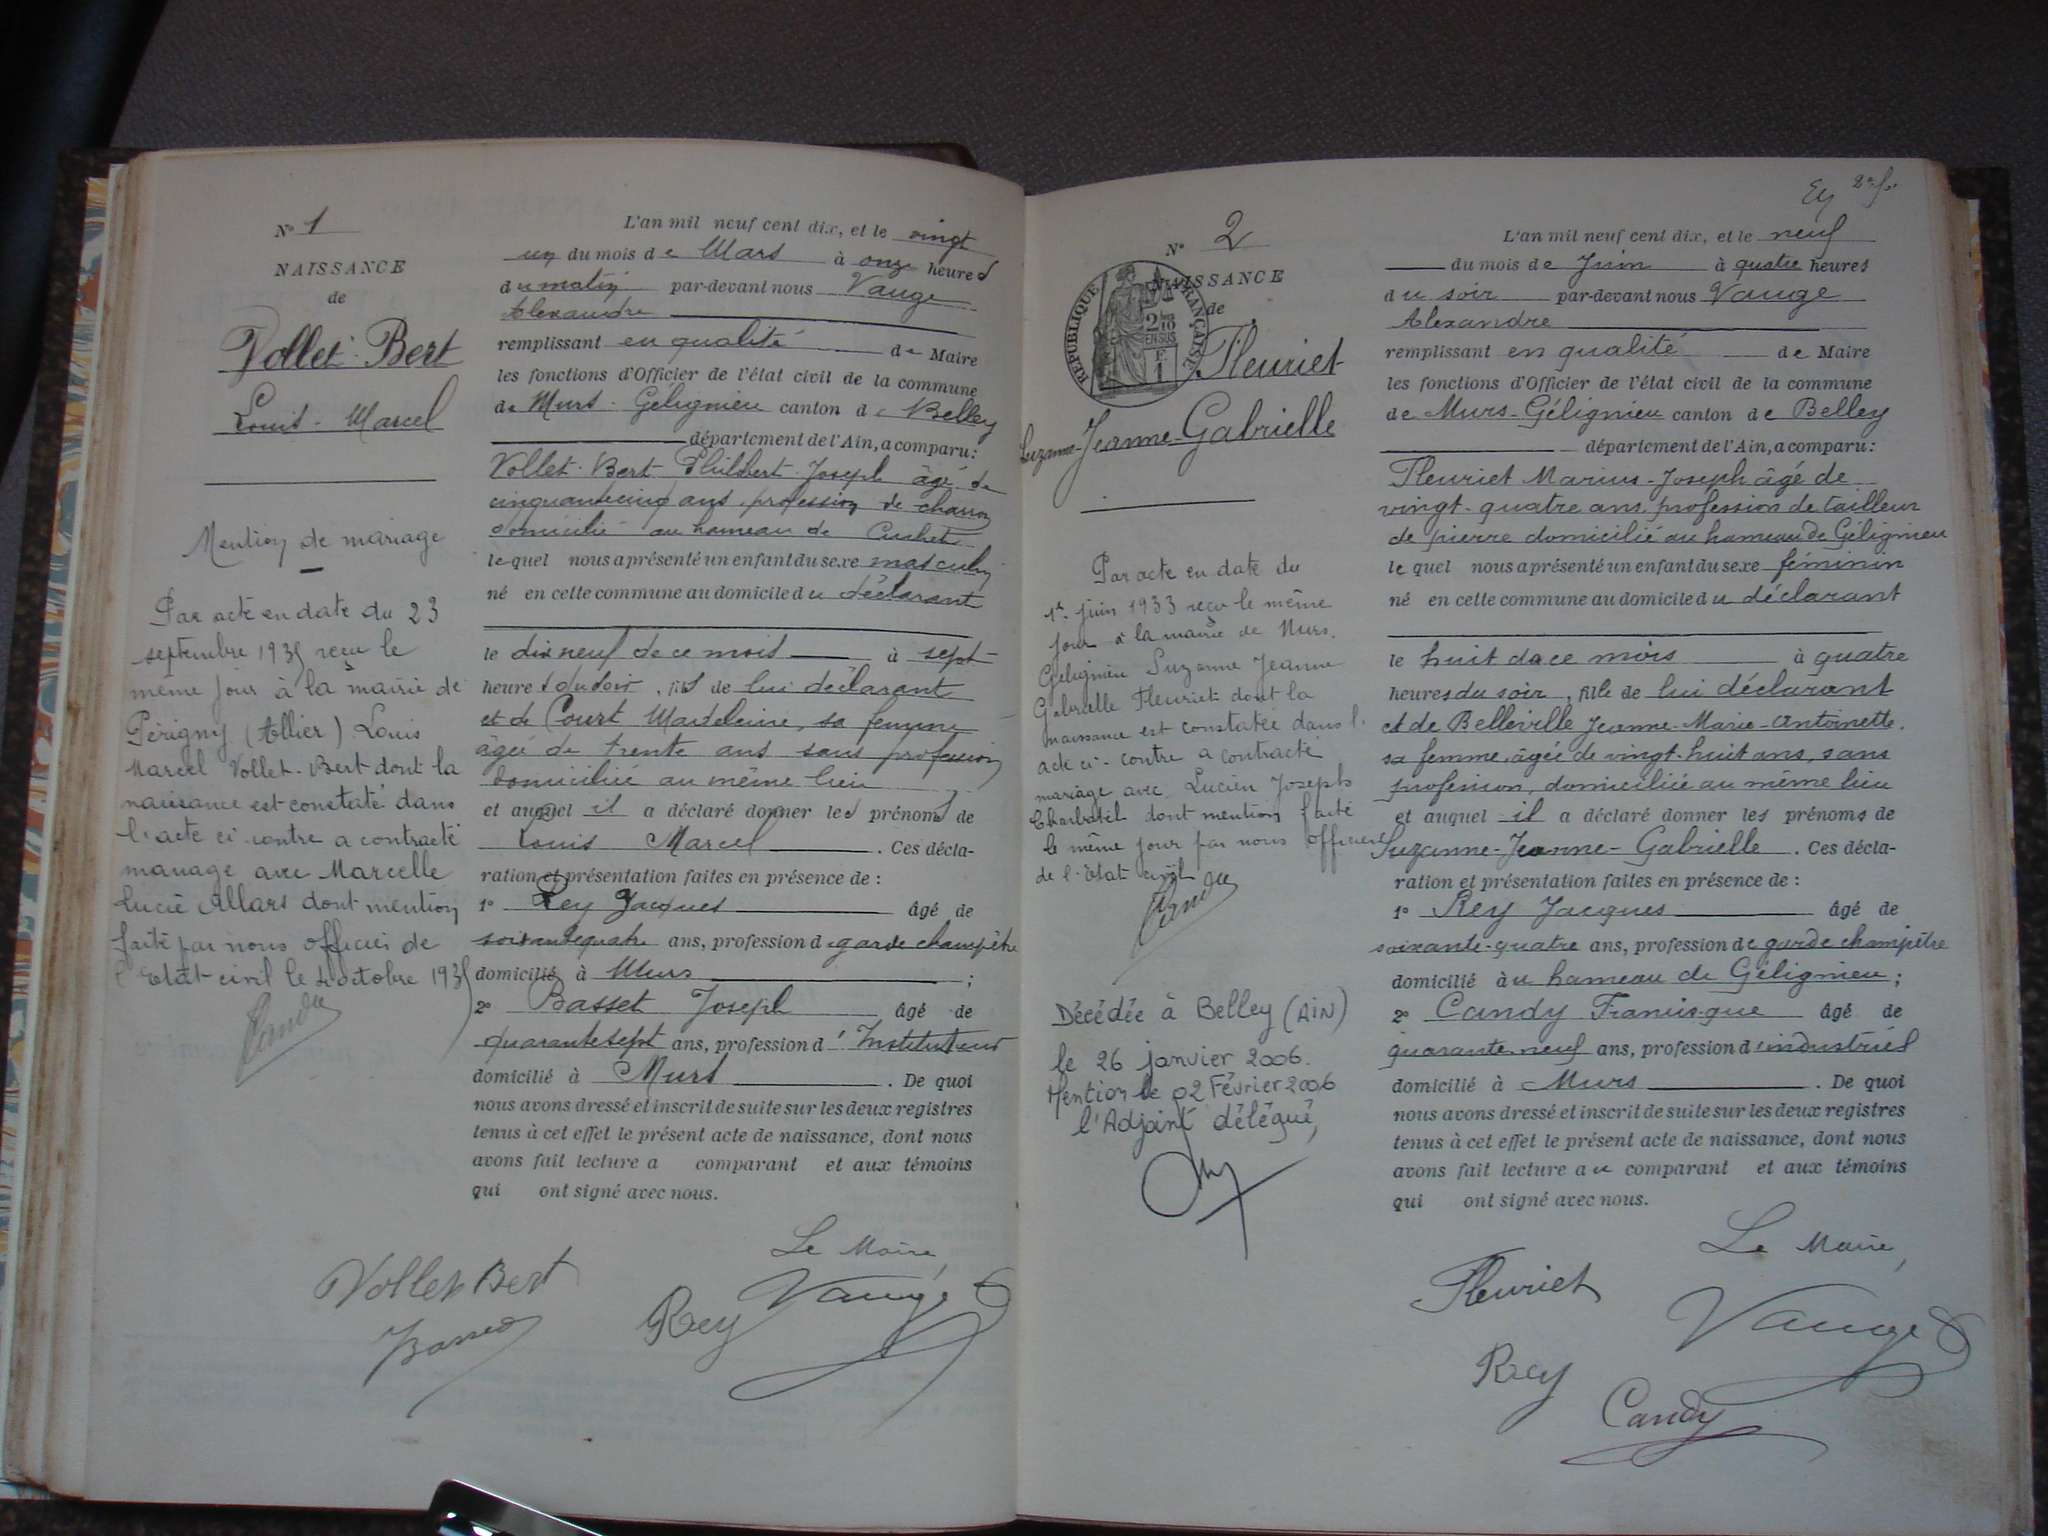 N° 1
NAISSANCE
de
Vollet-Bert
Louis-Marcel
Mention de mariage
Par acte en date du 23
septembre 1935 reçu le
même jour à la mairie de
Périgny (Allier) Louis
Marcel Vollet-Bert dont la
naissance est constaté dans
l'acte ci-contre a contracté
mariage avec Marcelle
Lucie Allars dont mention
faite par nous officier de
l'Etat-civil le 4 octobre 1935
L'an mil neuf cent dix, et le vingt
un du mois de Mars à onze heures
du matin par-devant nous Vauge
Alexandre
remplissant en qualité de Maire
les fonctions d'Officier de l'état civil de la commune
de Murs-Gélignieu canton de Belley
département de l'Ain, a comparu:
Vollet-Bert Philibert Joseph âgé de
cinquante cinq ans, profession de charron
domicilié au hameau de
lequel nous a présenté un enfant du sexe masculin
né en cette commune au domicile du déclarant
le dix neuf de ce mois à sept
heures du soir, fils de lui déclarant
et de Court Madeleine, sa femme
âgée de trente ans sans profession
domiciliée au même lieu
et auquel il a déclaré donner les prénoms de
Louis Marcel. Ces décla-
ration et présentation faites en présence de:
1° Rey Jacques âgé de
soixante quatre ans, profession de garde champêtre
domicilié à Murs;
2° Basset Joseph âgé de
quarante sept ans, profession d'Instituteur
domicilié à Murs. De quoi
nous avons dressé et inscrit de suite sur les deux registres
tenus à cet effet le présent acte de naissance, dont nous
avons fait lecture a comparant et aux témoins
qui ont signé avec nous.
Le Maire,
Vollet Bert
Rey
Vauge
Basset
N° 2
NAISSANCE
de
RÉPUBLIQUE FRANÇAISE
2/10
EN SUS
F.
1
Fleuriet
Suzanne-Jeanne-Gabrielle
Par acte en date du
1er juin 1933 reçu le même
jour à la mairie de Murs.
Gélignieu Suzanne Jeanne
Gabrielle Fleuriet dont la
naissance est constatée dans l'
acte ci-contre a contracté
mariage avec Lucien Joseph
Charbotel dont mention faite
le même jour par nous officier
de l'Etat civil
Décédée à Belley (AIN)
le 26 janvier 2006.
Mention le 02 Février 2006
l'Adjoint délégué,
L'an mil neuf cent dix, et le neuf
du mois de Juin à quatre heures
du soir par-devant nous Vauge
Alexandre
remplissant en qualité de Maire
les fonctions d'Officier de l'état civil de la commune
de Murs-Gélignieu canton de Belley
département de l'Ain, a comparu:
Fleuriet Marius-Joseph âgé de
vingt-quatre ans, profession de tailleur
de pierre domicilié au hameau de Gélignieu
lequel nous a présenté un enfant du sexe féminin
né en cette commune au domicile du déclarant
le huit de ce mois à quatre
heures du soir, fille de lui déclarant
et de Belleville Jeanne-Marie-Antoinette.
sa femme, âgée de vingt-huit ans, sans
profession, domiciliée au même lieu
et auquel il a déclaré donner les prénoms de
Suzanne-Jeanne-Gabrielle. Ces décla-
ration et présentation faites en présence de:
1° Rey Jacques âgé de
soixante-quatre ans, profession de garde champêtre
domicilié à u hameau de Gélignieu;
2° Candy Francisque âgé de
quarante neuf ans, profession d'industriel
domicilié à Murs. De quoi
nous avons dressé et inscrit de suite sur les deux registres
tenus à cet effet le présent acte de naissance, dont nous
avons fait lecture au comparant et aux témoins
qui ont signé avec nous.
Le Maire,
Fleuriet
Vauge
Rey
Candy